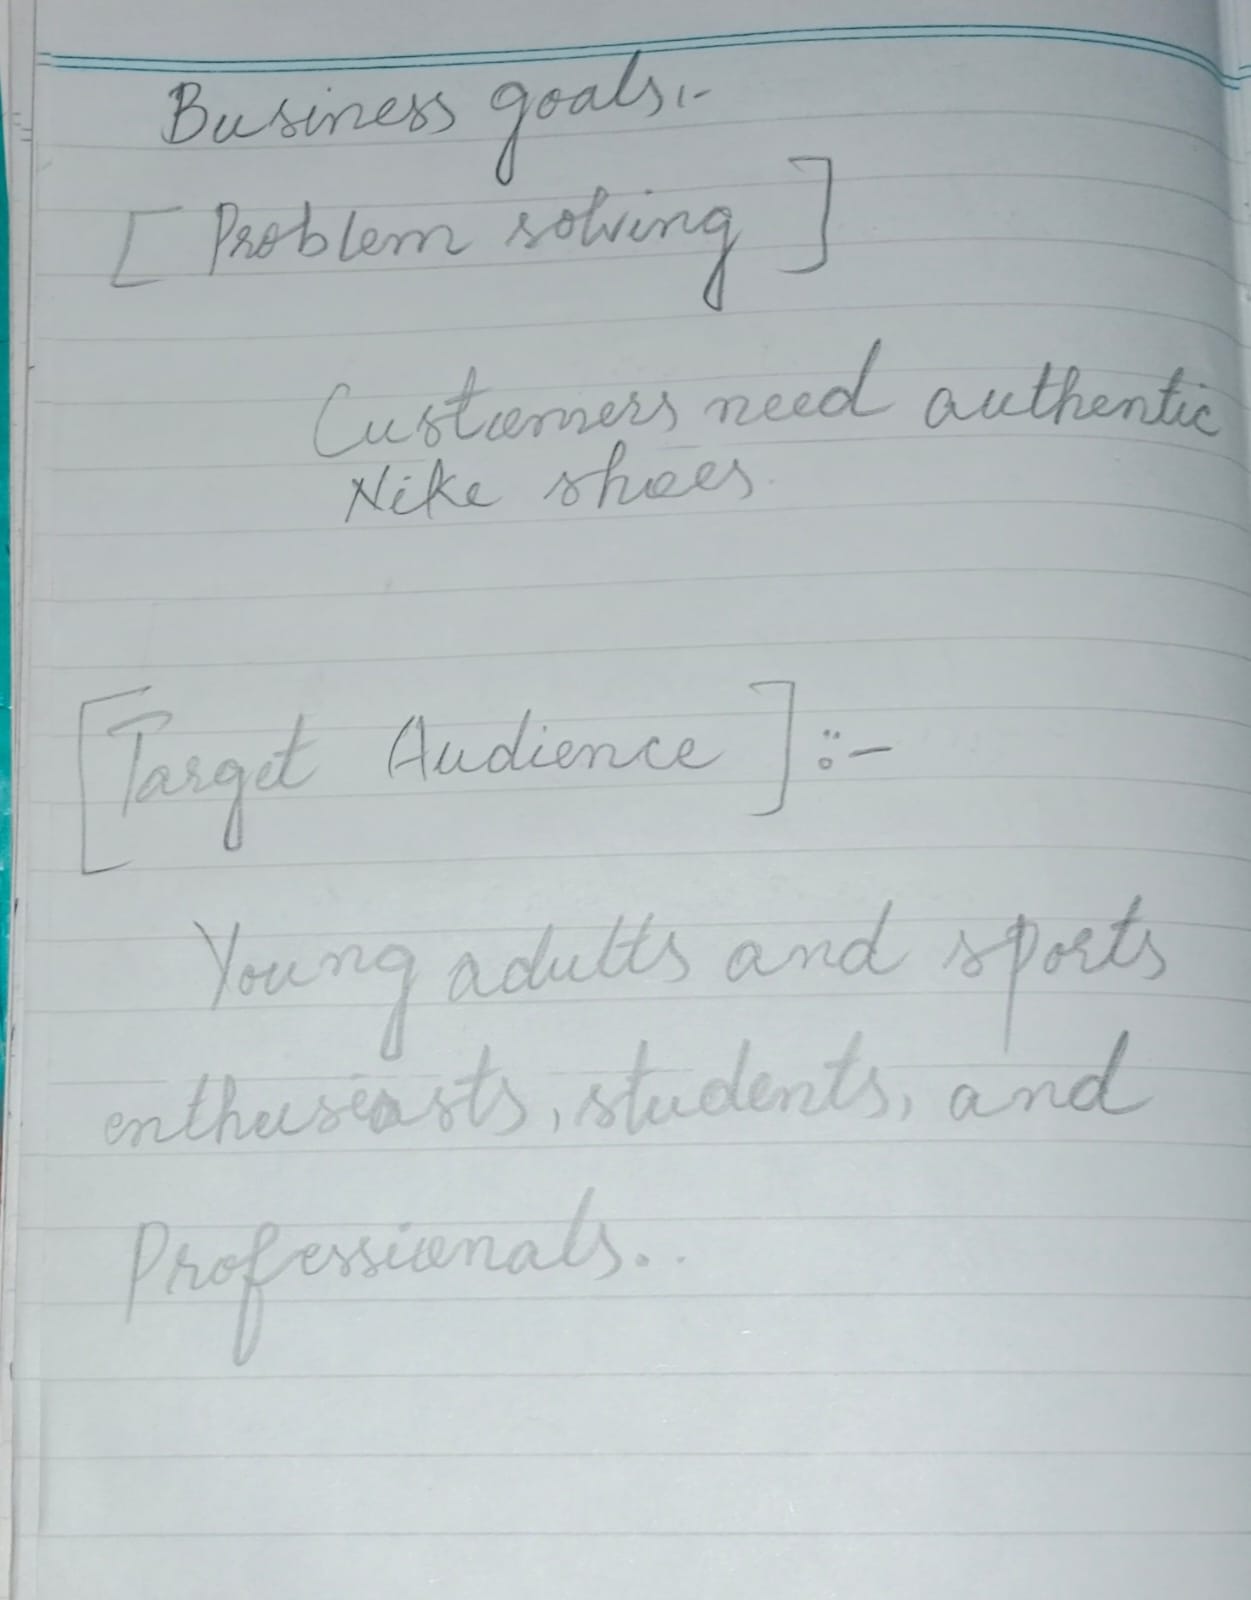 Business goals:-
[ Problem solving ]
Customers need authentic
Nike shoes.
[Target Audience ]:-
Young adults and sports
enthusiasts, students, and
Professionals..